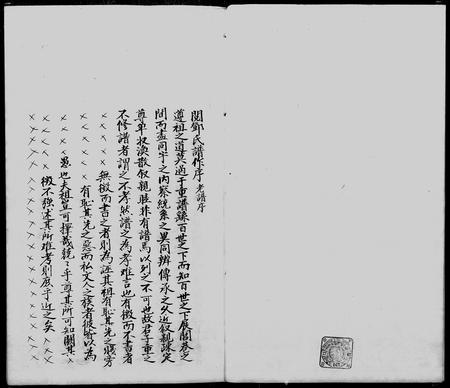 閱鄧氏譜作序 老譜序
遵祖之道莫過于重譜錄百世之下而知百世之上展閱卷之
間而盡同宇之內察統系之異同辨傳承之久近敘親疎定
尊卑收渙散敘親睦非有譜焉以列之不可也故君子重之
不修譜者謂之不孝然譜之為孝難言也有徵而不書者
無徵而書之者則為誣其祖有恥其先之賤旁
有恥其先之惡而私文人之族者彼皆以為
愚也夫祖豈可擇哉兢兢乎尊其所可知闕其
徵不強述其所難考則庶乎近之矣